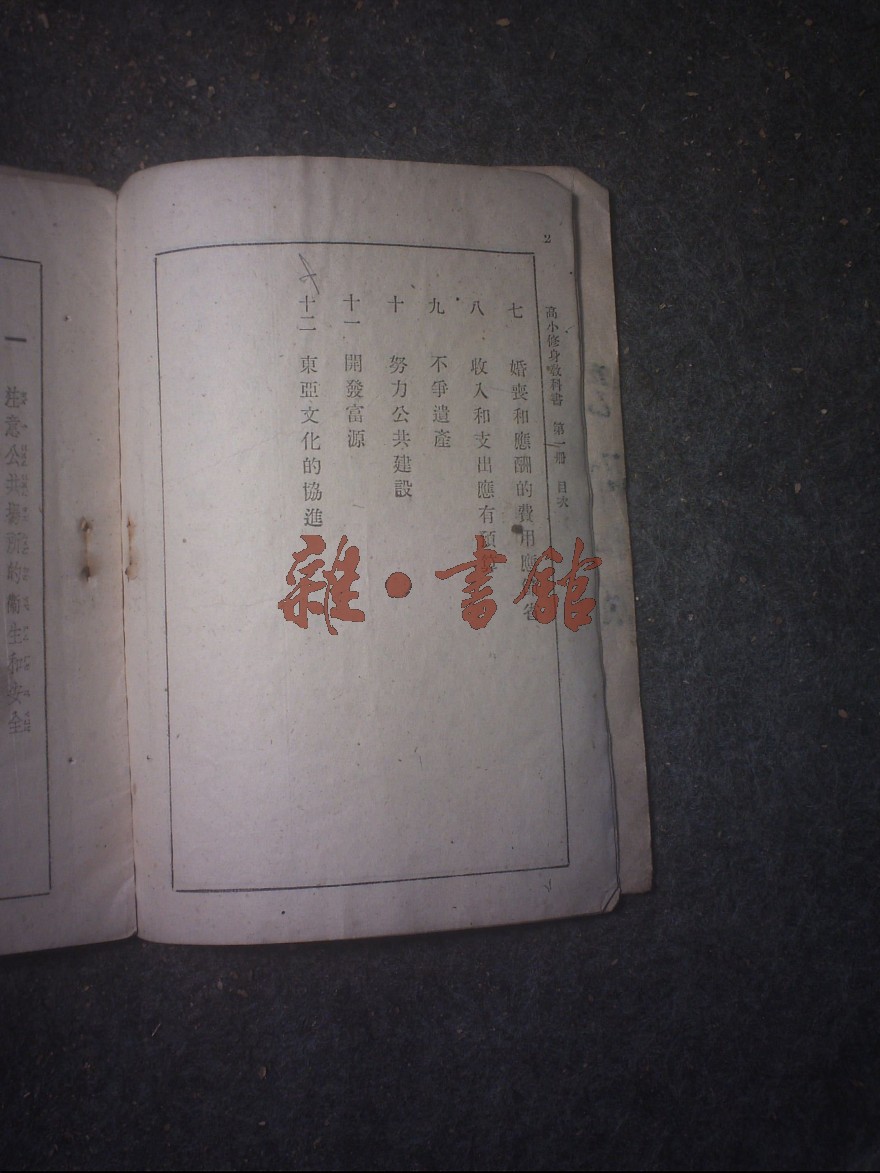 2
高小修身教科書 第一册 目次
七 婚喪和應酬的費用應 省
八 收入和支出應有預
九 不爭遺產
十 努力公共建設
十一 開發富源
十二 東亞文化的協進
雜·書館
一 注意公共場所的衛生和安全